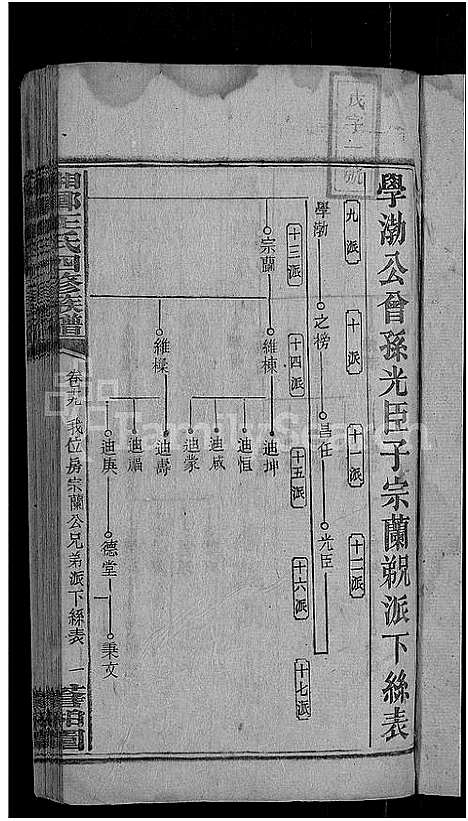 戊字一號
學渤公曾孫光臣子宗蘭覞派下絲表
九派
十派
十一派
十二派
學渤
之榜
昌任
光臣
十三派
十四派
十五派
十六派
十七派
宗蘭
維棟
迪坤
迪恒
迪咸
迪蒙
維樑
迪壽
迪疆
迪庚
德堂
秉文
湘鄉王氏四修族譜
卷十九
我位房宗蘭公兄弟派下絲表
一
FamilySearch